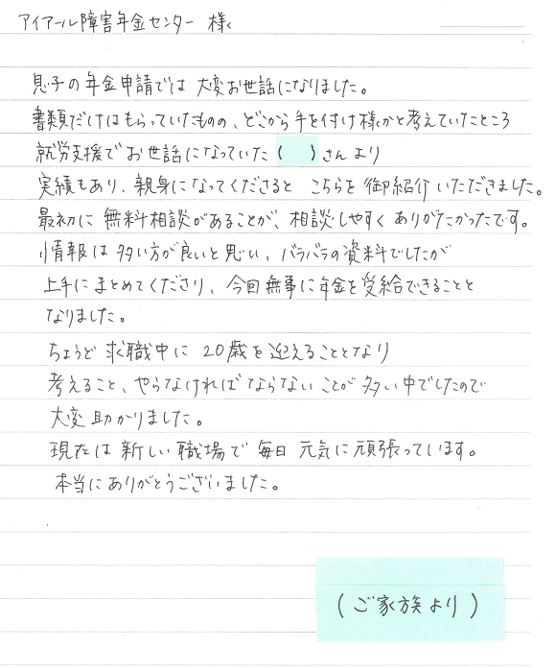 アイアール障害年金センター 様
息子の年金申請では 大変お世話になりました。
書類だけはもらっていたものの、どこから手を付け様かと考えていたところ
就労支援でお世話になっていた (　　) さんより
実績もあり、親身になってくださると こちらを御紹介いただきました。
最初に 無料相談があることが、相談しやすく ありがたかったです。
情報は 多い方が良いと思い、バラバラの資料でしたが
上手にまとめてくださり、今回無事に年金を受給できることと
なりました。
ちょうど 求職中に 20歳を迎えることとなり
考えること、やらなければならない ことが 多い中でしたので
大変 助かりました。
現在は 新しい職場で 毎日 元気に頑張っています。
本当にありがとうございました。
(ご家族より)